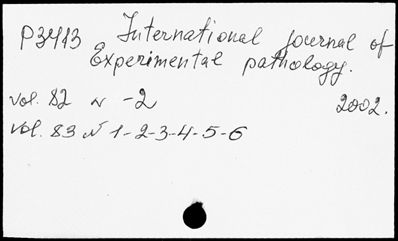 P3413 International journal of
Experimental pathology.
vol. 82 N -2 2002.
vol. 83 N 1-2-3-4-5-6